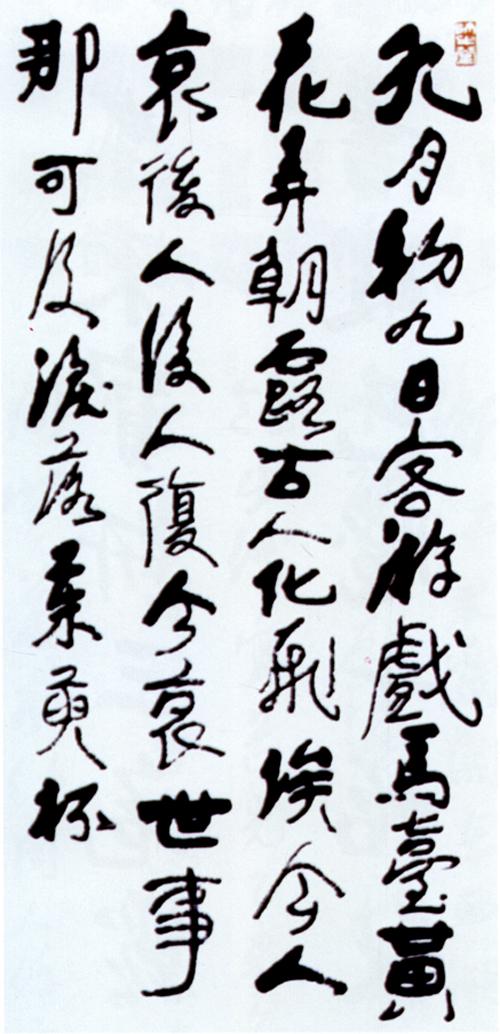 九月初九日客游戲馬臺黃
花弄朝露古人化飛埃今人
哀後人後人復今哀世事
那可及淚落茱萸杯